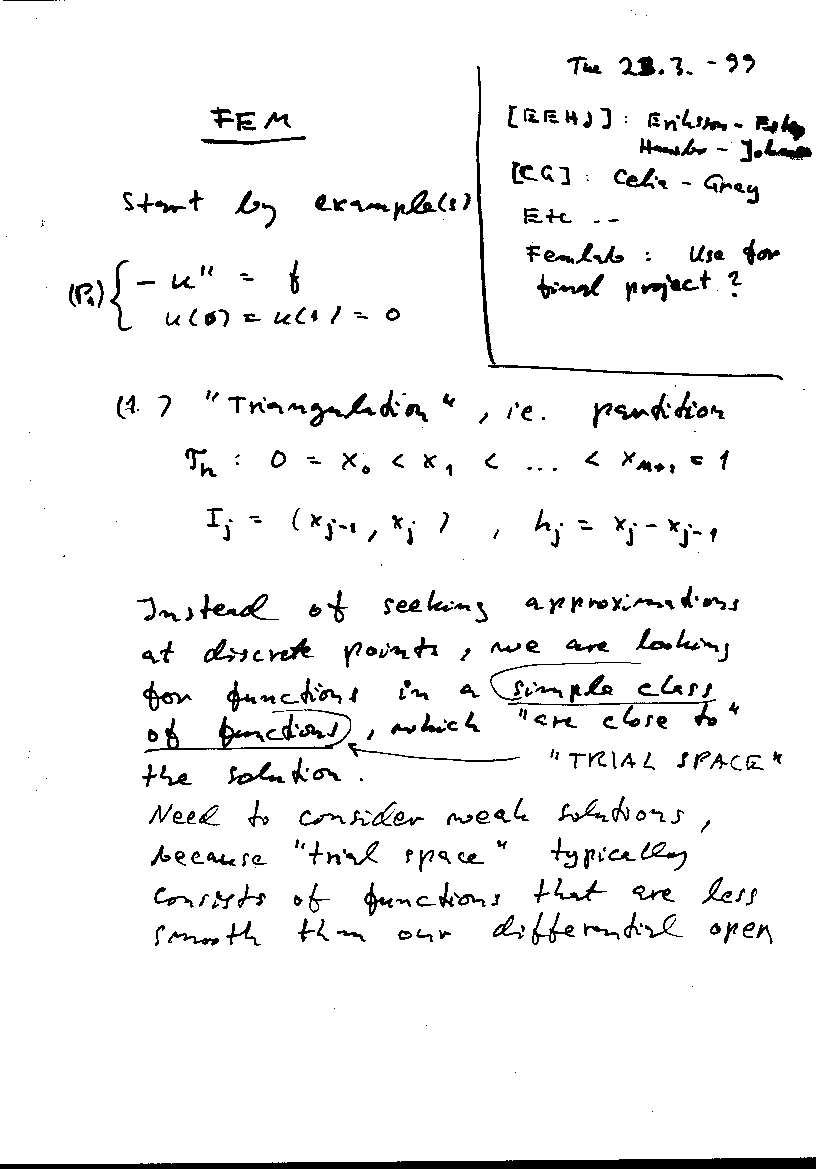 Tue 23.3. -99
[EEHJ] : Eriksson - Estep
Hansbo - Johnson
[CG] : Celia - Gray
Etc --
Femlab : Use for
final project ?
FEM
Start by example(s)
(P₁) { - u'' = f
u(0) = u(1) = 0
(1.) "Triangulation", i.e. partition
𝒯ₕ : 0 = x₀ < x₁ < ... < x_{M+1} = 1
I_j = (x_{j-1}, x_j) , h_j = x_j - x_{j-1}
Instead of seeking approximations
at discrete points, we are looking
for functions in a simple class
of functions, which "are close to"
the solution.
"TRIAL SPACE"
Need to consider weak solutions,
because "trial space" typically
consists of functions that are less
smooth than our differential open